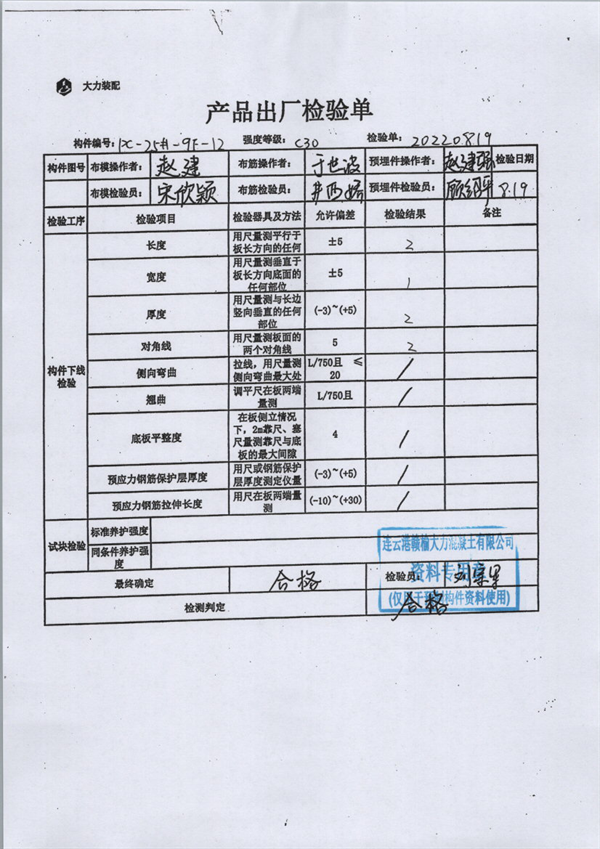 大力装配
产品出厂检验单
构件编号: PC-25#-9F-12 强度等级: C30 检验单: 20220819
构件图号 布模操作者: 赵建 布筋操作者: 于世波 预埋件操作者: 赵建强 检验日期
布模检验员: 宋欣颖 布筋检验员: 预埋件检验员: 8.19
检验工序 检验项目 检验器具及方法 允许偏差 检验结果 备注
构件下线检验
长度 用尺量测平行于板长方向的任何 ±5 2
宽度 用尺量测垂直于板长方向底面的任何部位 ±5 1
厚度 用尺量测与长边竖向垂直的任何部位 (-3)~(+5) 2
对角线 用尺量测板面的两个对角线 5 2
侧向弯曲 拉线，用尺量测侧向弯曲最大处 L/750且 ≤20 /
翘曲 调平尺在板两端量测 L/750且 /
底板平整度 在板侧立情况下，2m靠尺、塞尺量测靠尺与底板的最大间隙 4 /
预应力钢筋保护层厚度 用尺或钢筋保护层厚度测定仪量 (-3)~(+5) /
预应力钢筋拉伸长度 用尺在板两端量测 (-10)~(+30) /
试块检验 标准养护强度
同条件养护强度
连云港赣榆大力混凝土有限公司
资料专用章
(仅用于预制构件资料使用)
最终确定 合格 检验员:
检测判定 合格